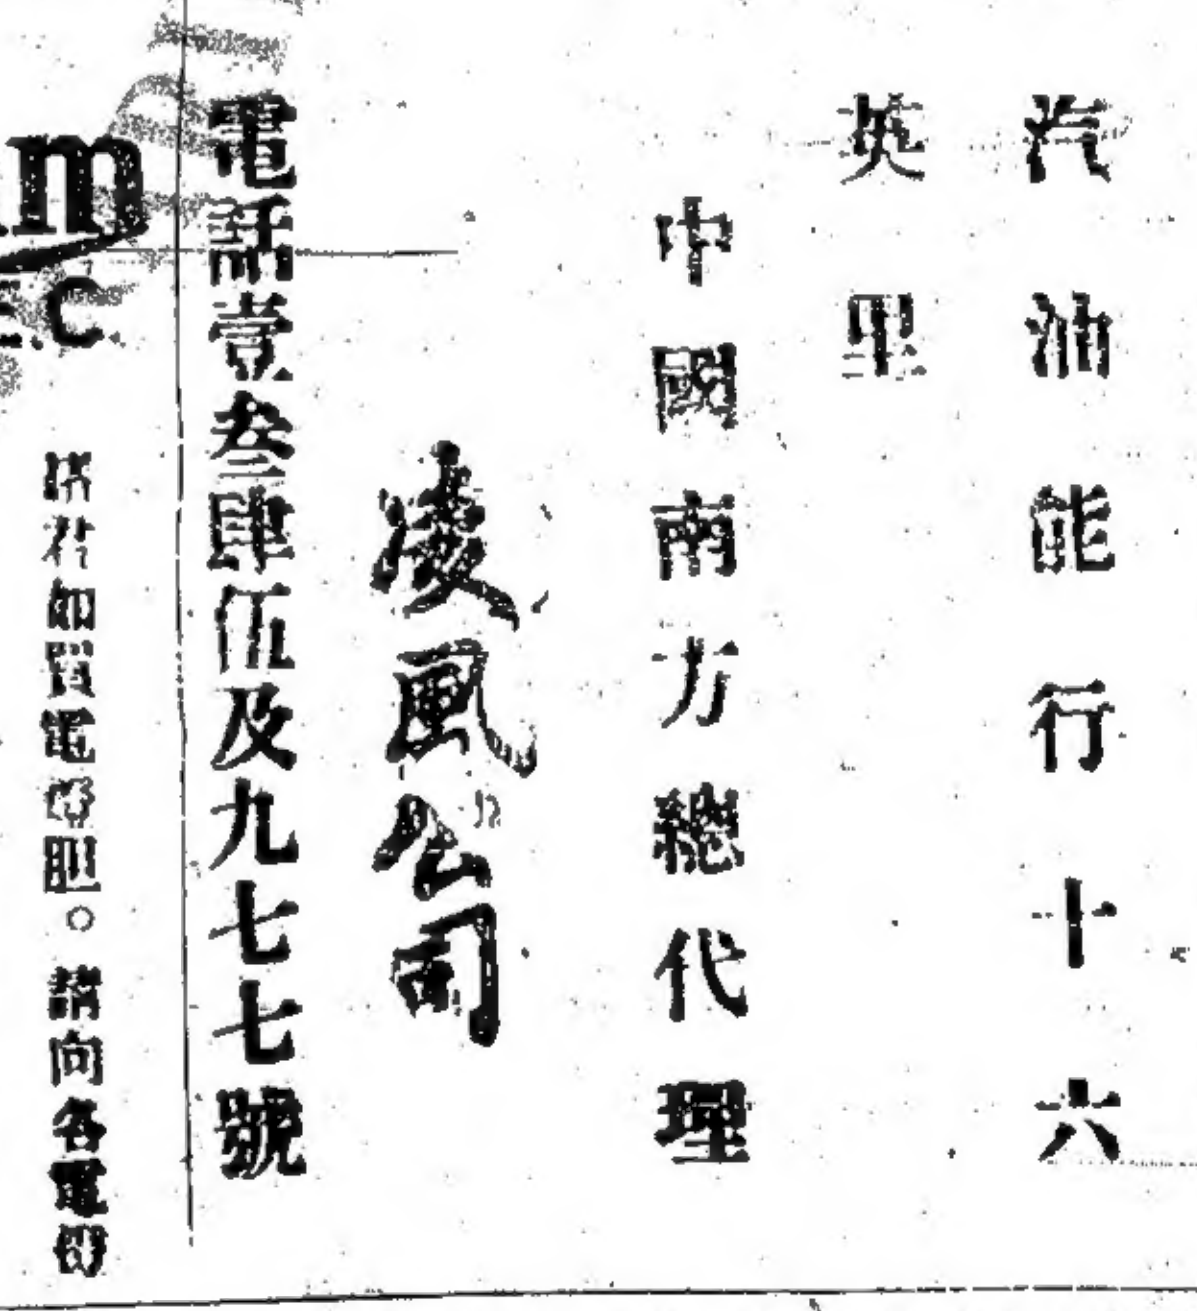 汽油能行十六
英里
中國南方總代理
凌風公司
電話壹叁肆伍及九七七號
諸君如買電燈胆。請向各電